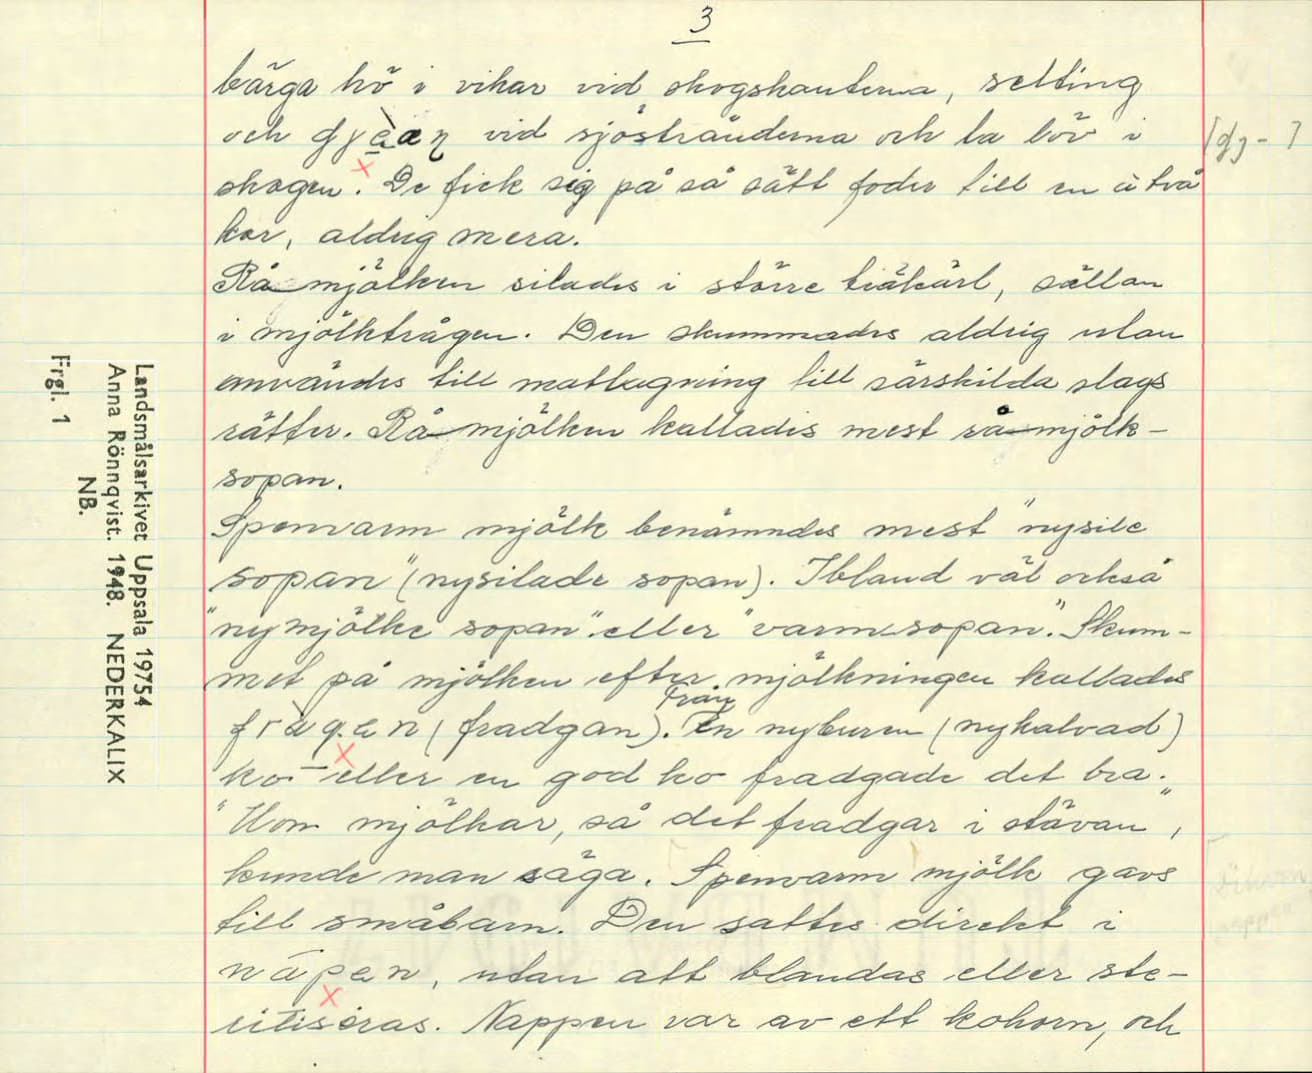 3
bärga hö i vikar vid skogskanterna, selting
och vid sjöstränderna och ta löv i
skogen. De fick sig på så sätt foder till en à två
kor, aldrig mera.
Råmjölken silades i större träkärl, sällan
i mjölktrågen. Den skummades aldrig utan
användes till matlagning till särskilda slags
rätter. Råmjölken kallades mest råmjölk-
sopan.
Spenvarm mjölk benämndes mest "nysile
sopan" (nysilade sopan). Ibland väl också
"nymjölke sopan" eller "varmsopan". Skum-
met på mjölken efter mjölkningen kallades
(fradgan). Från
En nyburen (nykalvad)
ko - eller en god ko fradgade det bra.
"Hon mjölkar, så det fradgar i stävan",
kunde man säga. Spenvarm mjölk gavs
till småbarn. Den sattes direkt i
nápen, utan att blandas eller ste-
riliseras. Nappen var av ett kohorn, och
Landsmålsarkivet Uppsala 19754
Anna Rönnqvist. 1948. NEDERKALIX
NB.
Frgl. 1